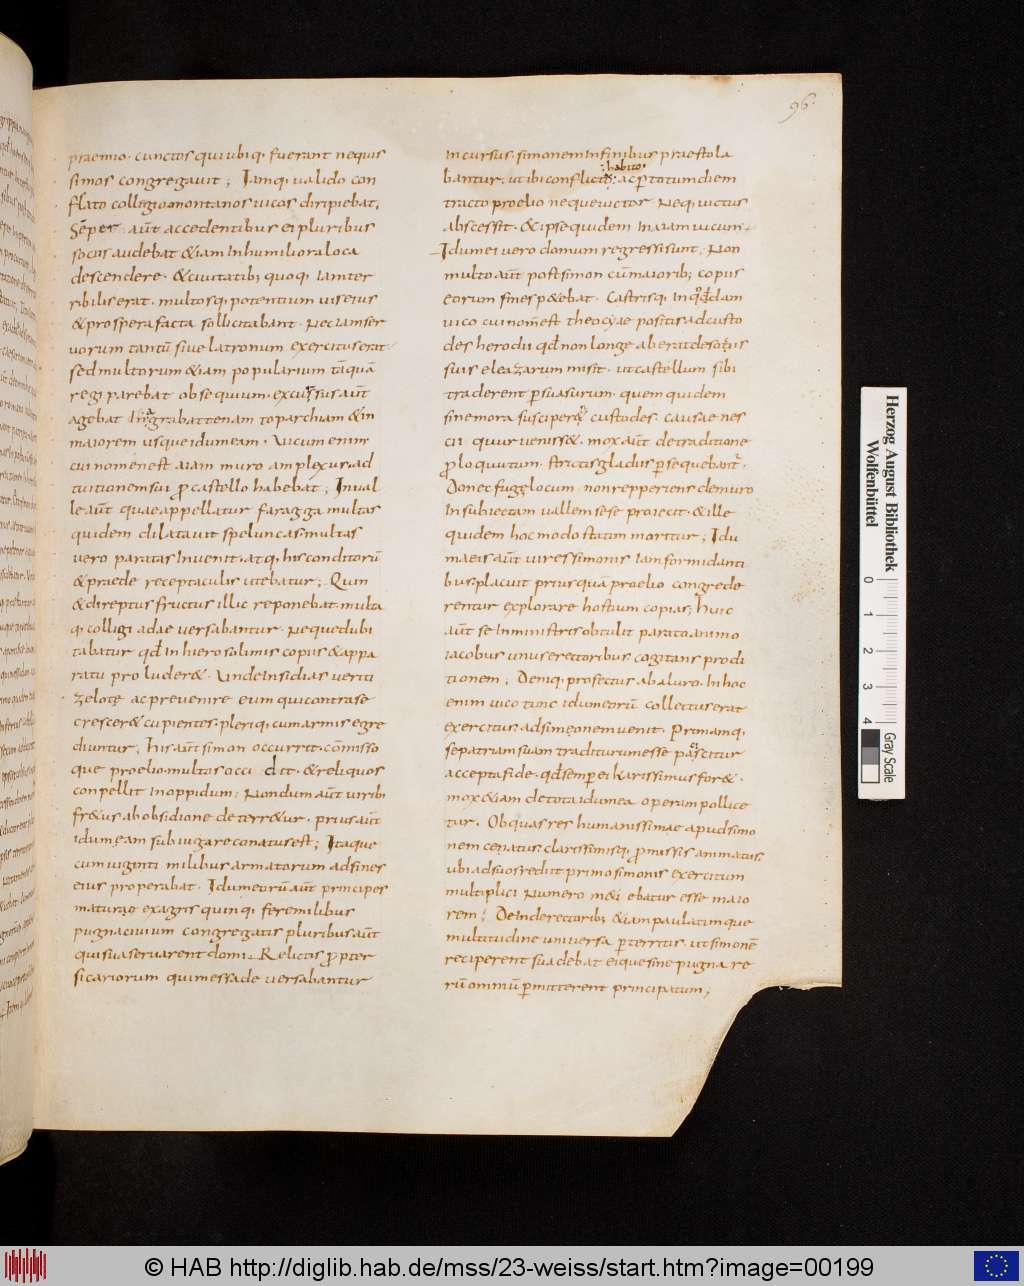 96
praemio. cunctos qui ubiq. fuerant nequis
simos congregavit; Iamq. valido con
flato collegio montanos vicos diripiebat.
Sēper aūt accedentibus ei pluribus
sociis audebat &iam in humiliora loca
descendere. & civitatib; quoq. iam ter
ribilis erat. multosq. potentium vis eius
& prospera facta sollicitabant. Nec iam ser
vorum tantū sive latronum exercitus erat
sed multorum &iam popularium tāquā
regi parebat obsequium. excursus aūt
agebat in agrabattenam toparchiam & in
maiorem usque idumeam. Vicum enim
cui nomen est aiam muro amplexus. ad
tuitionem sui pro castello habebat; In val
le aūt quae appellatur faragga multas
quidem dilatavit speluncas. multas
vero paratas invenit. atq. his conditorū
& praede receptaculis utebatur; Quin
& direptus fructus illic reponebat. multa
q. collegia adae versabantur. Neque dubi
tabatur qđ in hierosolimis copiis & appa
ratu pro luder&. Unde insidias veriti
zelotę ac prevenire eum qui contra se
crescer& cupientes. pleriq. cum armis egre
diuntur. his aūt simon occurrit. cōmisso
que proelio. multos occi dit. & reliquos
conpellit in oppidum; Nondum aūt virib;
fr&us ab obsidione deterr&ur. prius aūt
idumęam subiugare conatus est; Itaque
cum viginti milibus armatorum ad fines
eius properabat. Idumeorū aūt principes
maturę ex agris quinq. fere milibus
pugnacium congregatis pluribus aūt
qui sua servarent domi. Relictis propter
sicariorum qui messade versabantur
incursus. simonem in finibus praestola
bantur. ut ibi conflictu :habito: ac per totum diem
tracto proelio neque victor Neq. victus
abscessit. & ipse quidem in aiam vicum.
Idumei vero domum regressi sunt. Non
multo aūt post simon cū maiorib; copiis
eorum fines p&ebat. Castrisq. in quodam
vico cui nomen est theocyae positis ad custo
des herodii qđ non longe aberat de sociis
suis eleazarum misit. ut castellum sibi
traderent persuasurum. quem quidem
sine mora susceper& custodes. causae nes
cii. quur veniss&. mox aūt de traditione
proloquutum. strictis gladiis persequebant.
Donec fugę locum. non repperiens de muro
in subiectam vallem sese proiecit. & ille
quidem hoc modo statim moritur; Idu
maeis aūt vires simonis iam formidanti
bus. placuit priusquā proelio congrede
rentur explorare hostium copias; huic
aūt se in ministris obtulit parato animo
iacobus unus e rectoribus. cogitans prodi
tionem; Deniq. profectus ab aluro. In hoc
enim vico tunc idumeorū collectus erat
exercitus. ad simęonem venit. Primamq.
se patriam suam traditurum esse paciscitur
accepta fide. qđ semper ei karissimus for&.
mox &iam de tota idumea operam pollice
tur. Ob quas res humanissimae apud simo
nem cenatus. clarissimisq. promissis animatus.
ubi ad suos rediit primo simonis exercitum
multiplici Numero m&iebatur esse maio
rem; Deinde rectorib; &iam paulatimque
multitudine universa perterritis. ut simonē
reciperent suadebat eique sine pugna re
rū omniū permitterent principatum;
Herzog August Bibliothek
Wolfenbüttel
0 1 2 3 4
Gray Scale
© HAB http://diglib.hab.de/mss/23-weiss/start.htm?image=00199